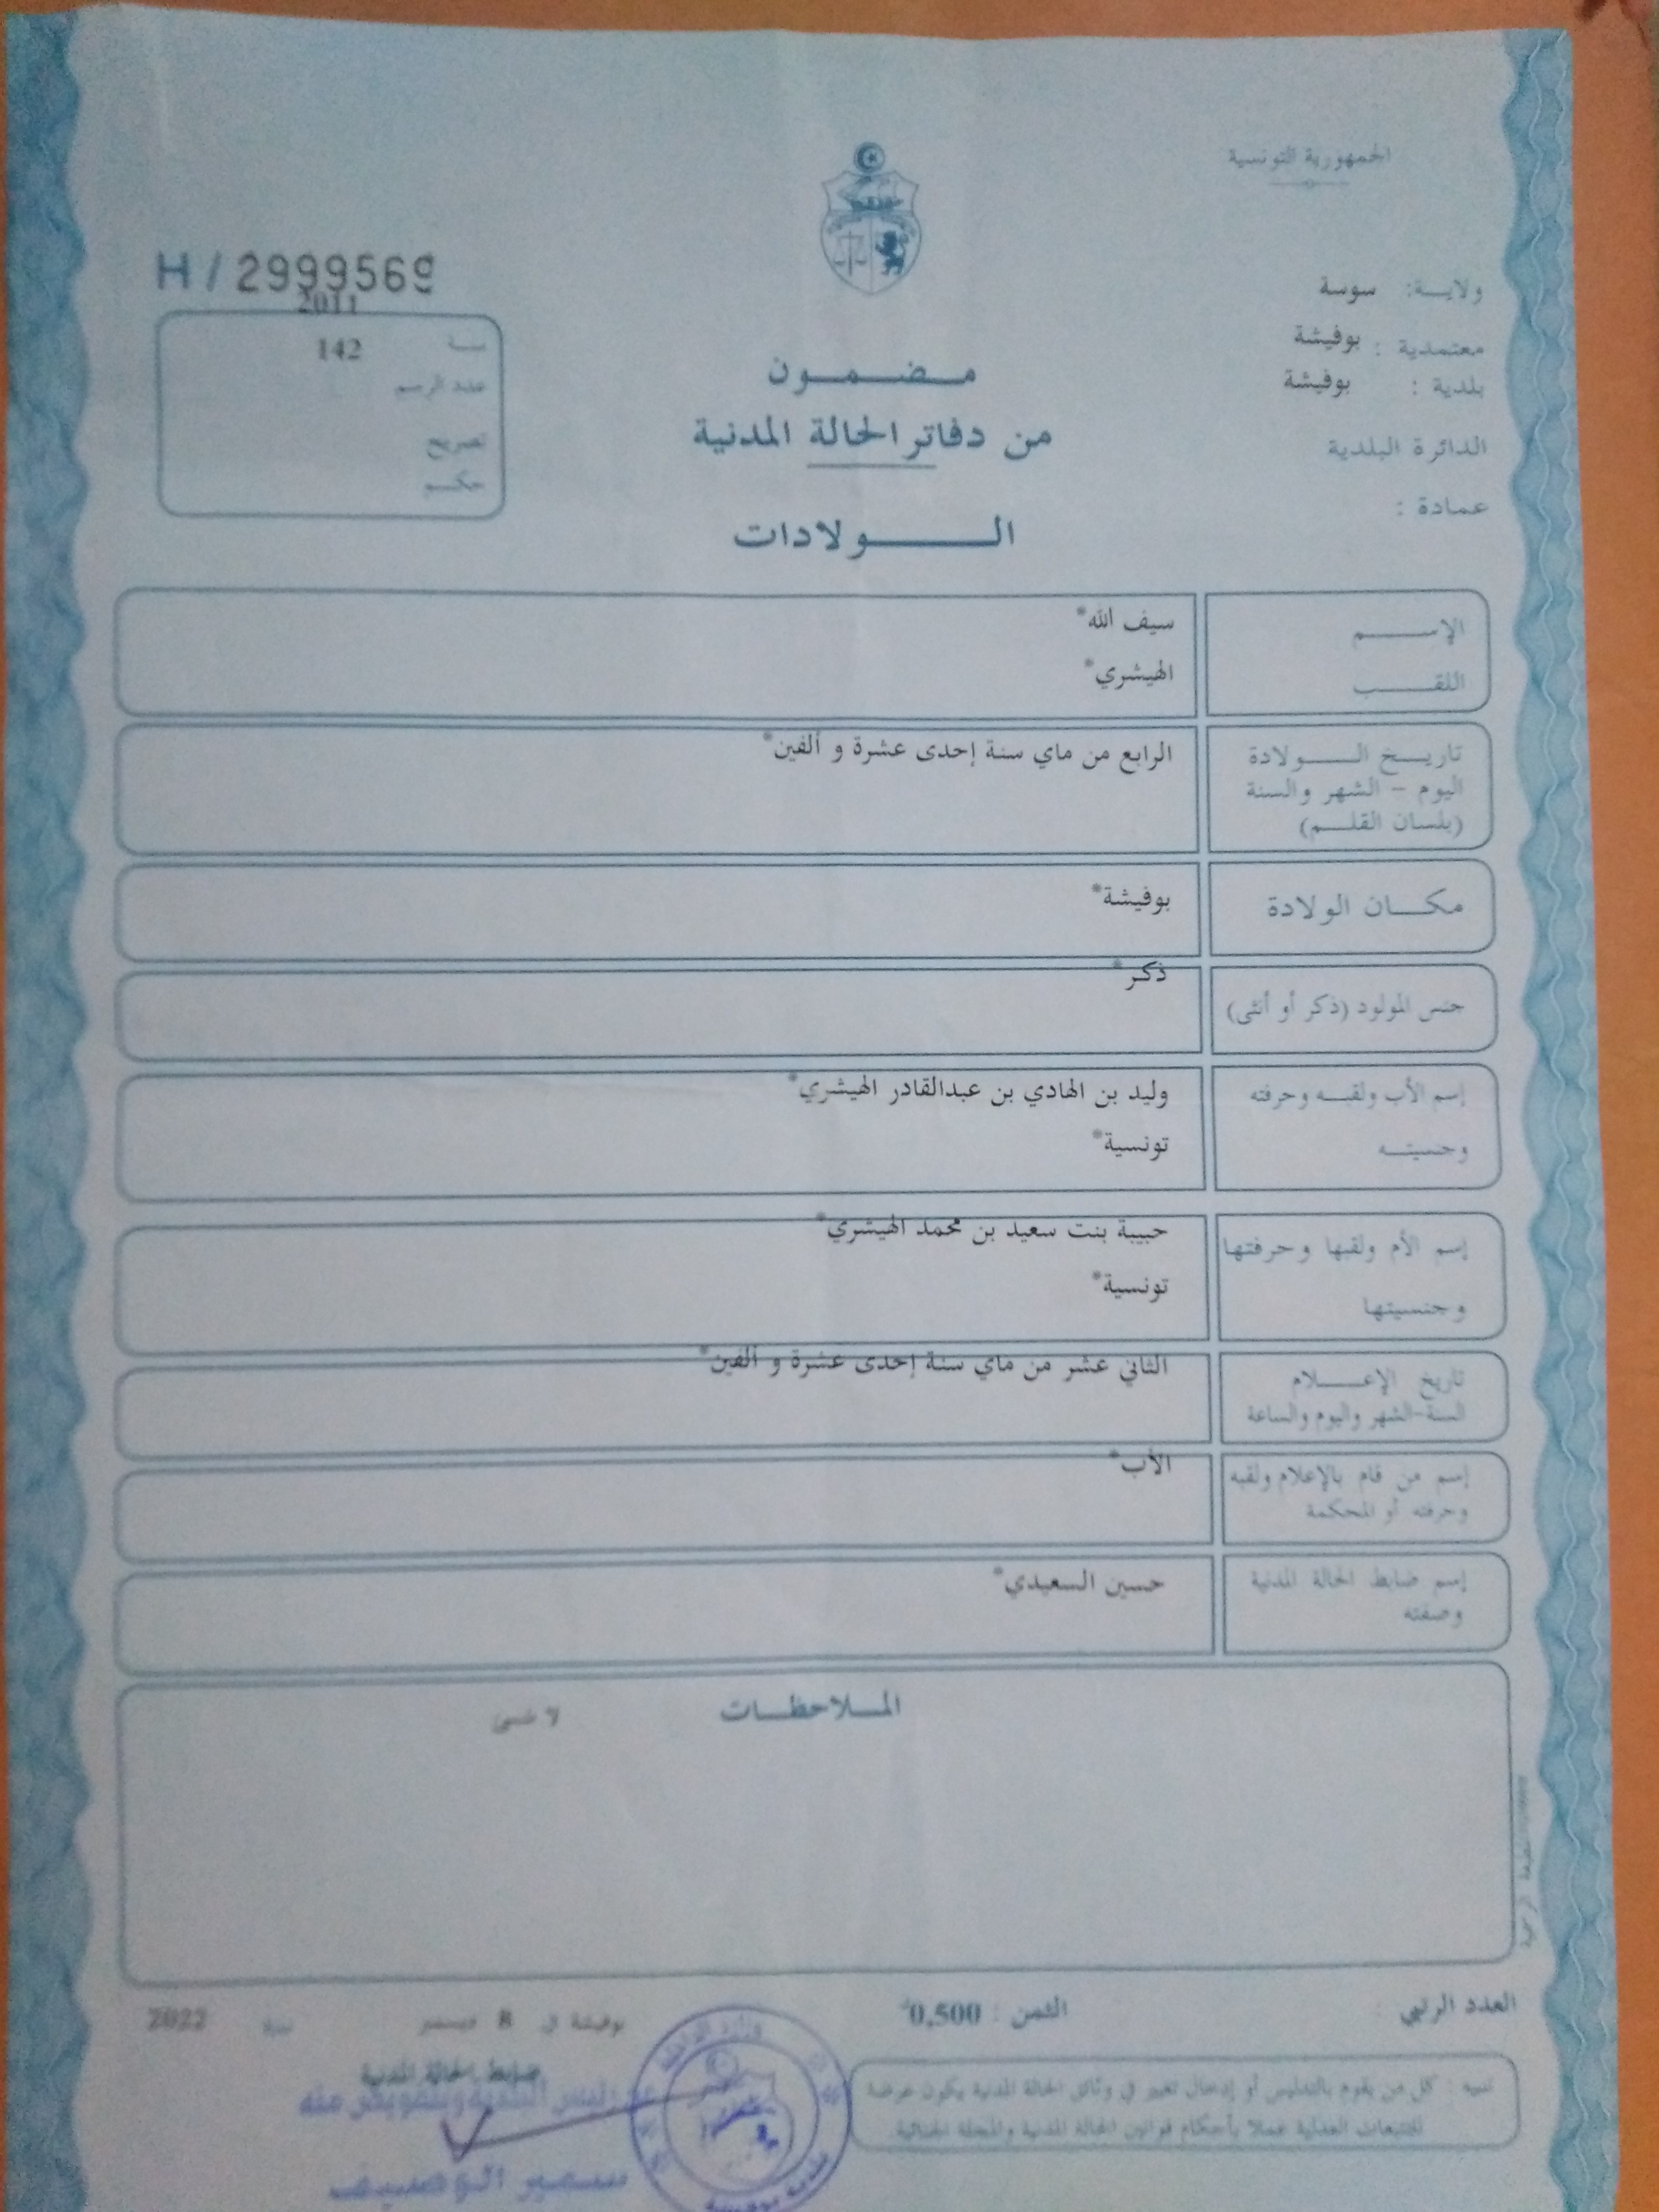 الجمهورية التونسية
H / 2999569
2011
ولايـــة: سوسة
سنـــة
142
معتمدية : بوفيشة
عدد الرسم
بلدية : بوفيشة
تصريح
الدائرة البلدية
حكـــم
عمادة :
مـــضـــمـــون
من دفاتر الحالة المدنية
الـــــــولادات
الإســـــم سيف الله*
اللقـــــب الهيشري*
تاريـــخ الـــــولادة الرابع من ماي سنة إحدى عشرة و ألفين*
اليوم - الشهر والسنة
(بلسان القلـــم)
مكـــان الولادة بوفيشة*
جنس المولود (ذكر أو أنثى) ذكر*
إسم الأب ولقبـــه وحرفته وليد بن الهادي بن عبدالقادر الهيشري*
وجنسيتـــه تونسية*
إسم الأم ولقبها وحرفتها حبيبة بنت سعيد بن محمد الهيشري*
وجنسيتها تونسية*
تاريخ الإعـــــلام الثاني عشر من ماي سنة إحدى عشرة و ألفين*
السنة-الشهر واليوم والساعة
إسم من قام بالإعلام ولقبه الأب*
وحرفته أو المحكمة
إسم ضابط الحالة المدنية حسين السعيدي*
وصفته
المـــلاحظـــات لا شئ
العدد الرتبي
الثمن : 0,500
بوفيشة في 8 ديسمبر سنة 2022
ضابط الحالة المدنية
عن رئيس البلدية وبتفويض منه
سمير الوصيف
وزارة الداخلية
بلدية بوفيشة
تنبيه : كل من يقوم بالتدليس أو إدخال تغيير في وثائق الحالة المدنية يكون عرضة
للتتبعات العدلية عملا بأحكام قوانين الحالة المدنية والمجلة الجنائية